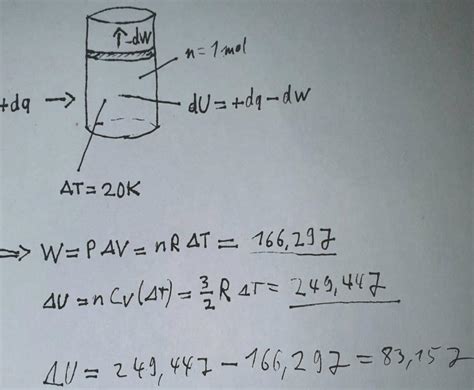 ↑-dW
n = 1 mol
+dq →
dU = +dq - dW
ΔT = 20K
⇒ W = P ΔV = nR ΔT = 166,29J
ΔU = n Cv (Δt) = 3/2 R ΔT = 249,44J
ΔU = 249,44J - 166,29J = 83,15J